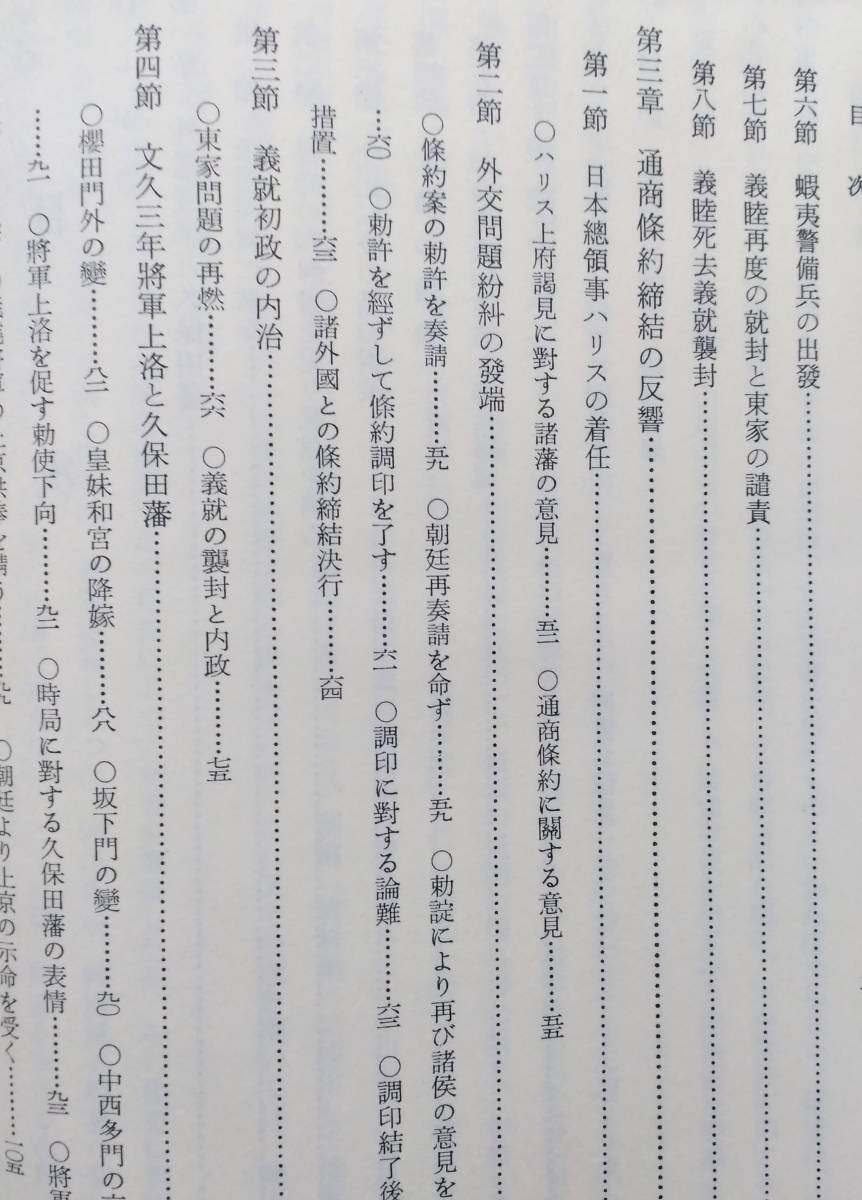 目次
第六節　蝦夷警備兵の出發……………………
第七節　義睦再度の就封と東家の譴責……………………
第八節　義睦死去義就襲封……………………
第三章　通商條約締結の反響……………………
第一節　日本總領事ハリスの着任……………………
〇ハリス上府謁見に對する諸藩の意見………五二　〇通商條約に關する意見………五五
第二節　外交問題紛糾の發端……………………
〇條約案の勅許を奏請………五九　〇朝廷再奏請を命ず………五九　〇勅諚により再び諸侯の意見を
…六〇　〇勅許を經ずして條約調印を了す………六一　〇調印に對する論難………六三　〇調印結了後
措置………六三　〇諸外國との條約締結決行………六四
第三節　義就初政の内治……………………
〇東家問題の再燃………六六　〇義就の襲封と内政………七五
第四節　文久三年將軍上洛と久保田藩……………………
〇櫻田門外の變………八二　〇皇妹和宮の降嫁………八八　〇坂下門の變………九〇　〇中西多門の
……九一　〇將軍上洛を促す勅使下向………九二　〇時局に對する久保田藩の表情………九三　〇將軍
………九九　〇朝廷より上京の示命を受く………一〇五